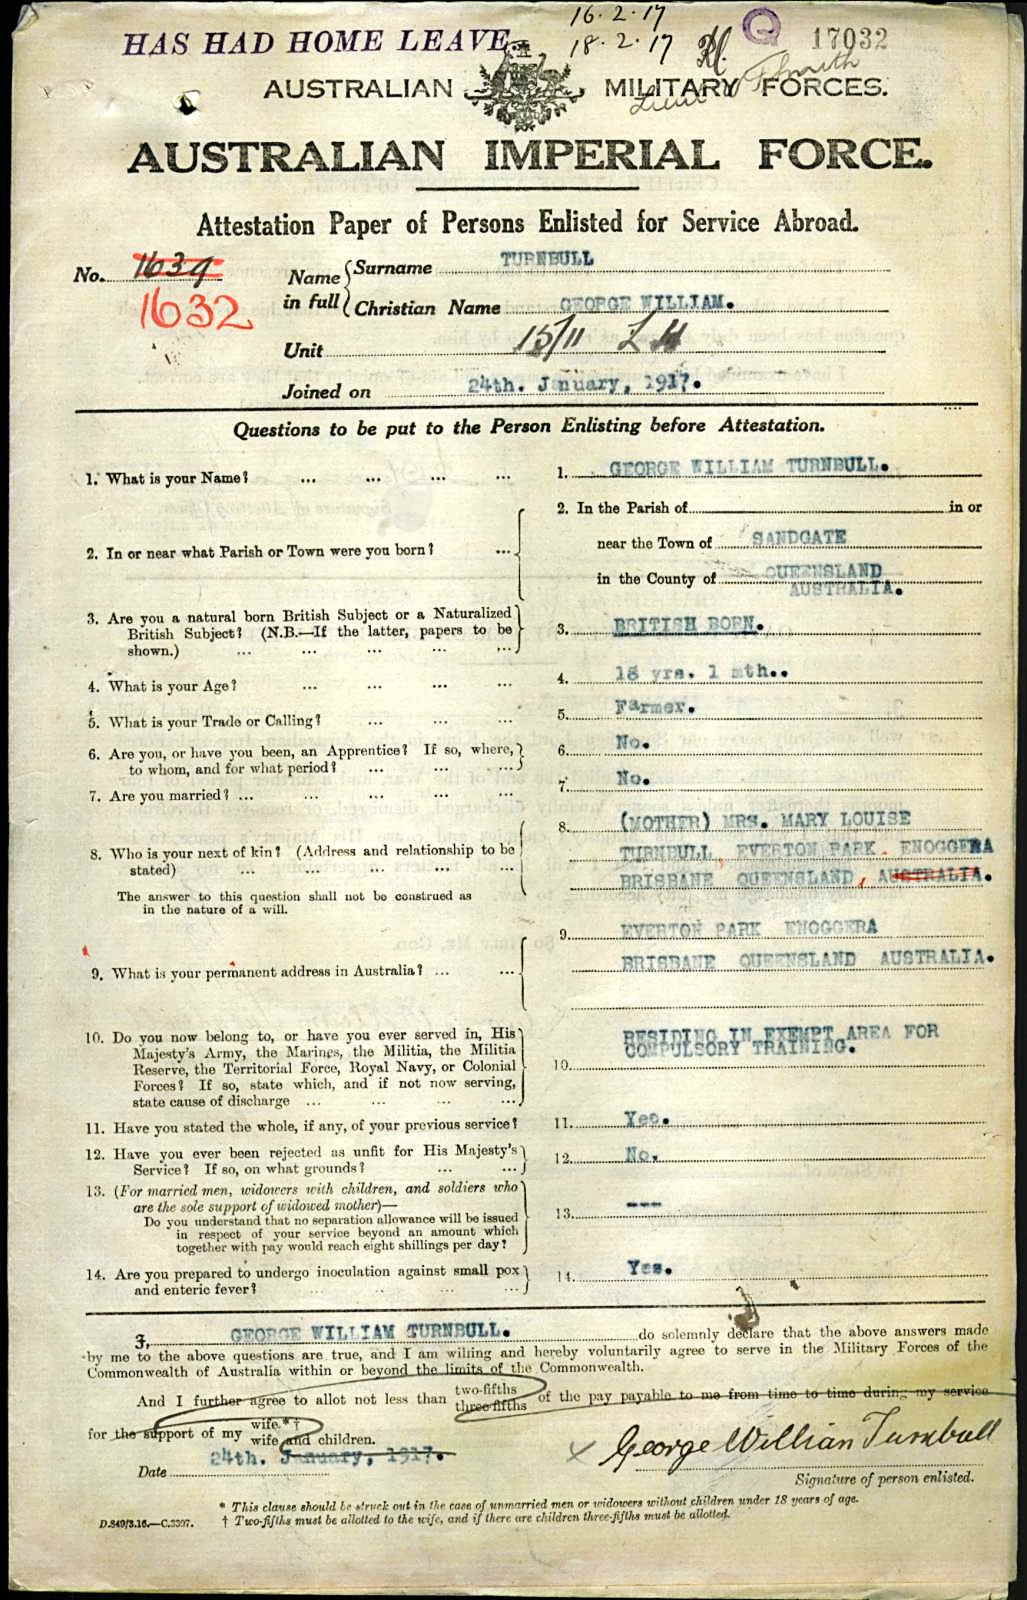 16.2.17
HAS HAD HOME LEAVE.
18.2.17
17032
AUSTRALIAN MILITARY FORCES.
AUSTRALIAN IMPERIAL FORCE.
Attestation Paper of Persons Enlisted for Service Abroad.
No. 1639
1632
Name in full
Surname TURNBULL
Christian Name GEORGE WILLIAM.
Unit 15/11 L H
Joined on 24th. January, 1917.
Questions to be put to the Person Enlisting before Attestation.
1. What is your Name? ... ... ... ... 1. GEORGE WILLIAM TURNBULL.
2. In or near what Parish or Town were you born? ...
2. In the Parish of in or
near the Town of SANDGATE
in the County of QUEENSLAND
AUSTRALIA.
3. Are you a natural born British Subject or a Naturalized
British Subject? (N.B.—If the latter, papers to be
shown.) ... ... ... ... ...
3. BRITISH BORN.
4. What is your Age? ... ... ... ... 4. 18 yrs. 1 mth..
5. What is your Trade or Calling? ... ... ... 5. Farmer.
6. Are you, or have you been, an Apprentice? If so, where,
to whom, and for what period? ... ... ...
6. No.
7. Are you married? ... ... ... ... ... 7. No.
8. Who is your next of kin? (Address and relationship to be
stated) ... ... ... ... ...
The answer to this question shall not be construed as
in the nature of a will.
8. (MOTHER) MRS. MARY LOUISE
TURNBULL, EVERTON PARK. ENOGGERA
BRISBANE QUEENSLAND, AUSTRALIA.
9. What is your permanent address in Australia? ... ...
9. EVERTON PARK ENOGGERA
BRISBANE QUEENSLAND AUSTRALIA.
10. Do you now belong to, or have you ever served in, His
Majesty's Army, the Marines, the Militia, the Militia
Reserve, the Territorial Force, Royal Navy, or Colonial
Forces? If so, state which, and if not now serving,
state cause of discharge ... ... ... ...
RESIDING IN EXEMPT AREA FOR
COMPULSORY TRAINING.
10.
11. Have you stated the whole, if any, of your previous service? 11. Yes.
12. Have you ever been rejected as unfit for His Majesty's
Service? If so, on what grounds? ... ...
12. No.
13. (For married men, widowers with children, and soldiers who
are the sole support of widowed mother)—
Do you understand that no separation allowance will be issued
in respect of your service beyond an amount which
together with pay would reach eight shillings per day?
13. ---
14. Are you prepared to undergo inoculation against small pox
and enteric fever? ... ... ... ...
14. Yes.
I, GEORGE WILLIAM TURNBULL. do solemnly declare that the above answers made
by me to the above questions are true, and I am willing and hereby voluntarily agree to serve in the Military Forces of the
Commonwealth of Australia within or beyond the limits of the Commonwealth.
And I further agree to allot not less than two-fifths three-fifths of the pay payable to me from time to time during my service
for the support of my wife.*† wife and children.
24th. January, 1917.
Date
George William Turnbull
Signature of person enlisted.
* This clause should be struck out in the case of unmarried men or widowers without children under 18 years of age.
D.849/3.16.—C.3397. † Two-fifths must be allotted to the wife, and if there are children three-fifths must be allotted.